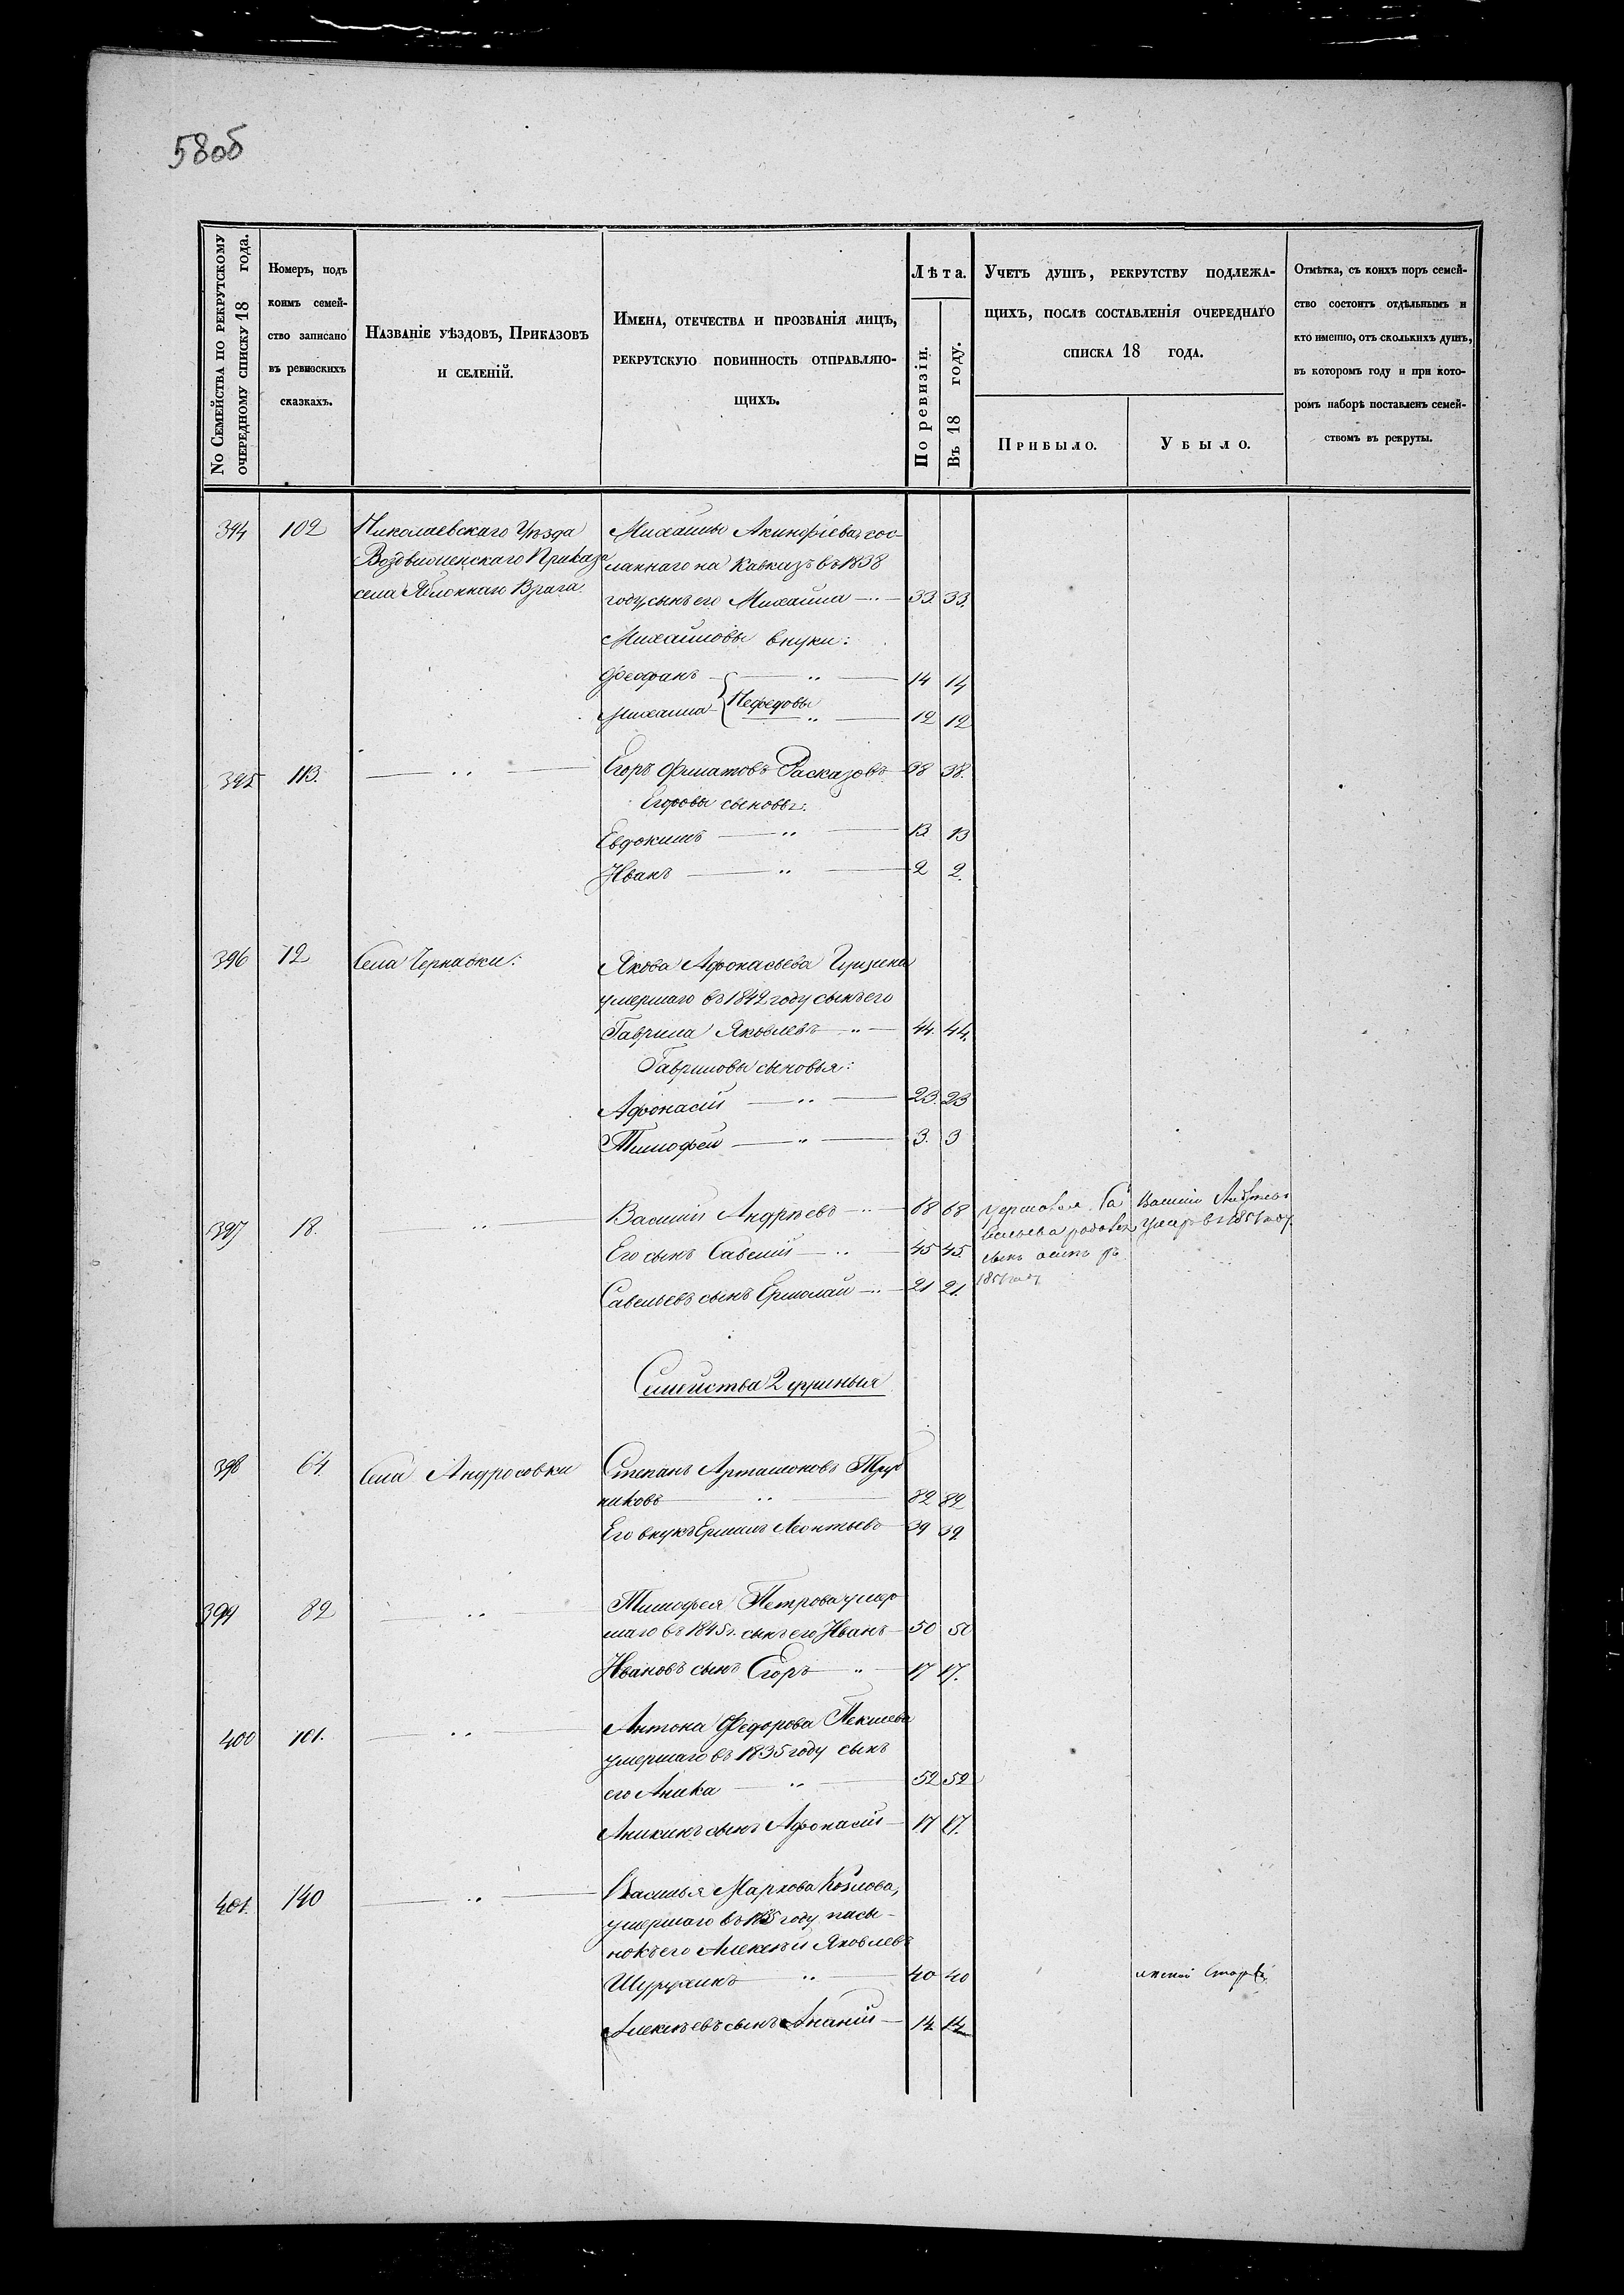 58об
No Семейства по рекрутскому очередному списку 18 года.
Номеръ, подъ коимъ семейство записано въ ревизскихъ сказкахъ.
Названіе уѣздовъ, Приказовъ
и селеній.
Имена, отечества и прозванія лицъ,
рекрутскую повинность отправляю-
щихъ.
Лѣта.
По ревизіи.
Въ 18 году.
Учетъ душъ, рекрутству подлежа-
щихъ, послѣ составленія очереднаго
списка 18 года.
Прибыло.
Убыло.
Отмѣтка, съ коихъ поръ семей-
ство состоитъ отдѣльнымъ и
кто именно, отъ сколькихъ душъ,
въ которомъ году и при кото-
ромъ наборѣ поставленъ семей-
ствомъ въ рекруты.
394 102 Николаевскаго Уѣзда Михайлы Акинфіева, сос-
Воздвиженскаго Приказа ланнаго на Кавказъ въ 1838
села Яблоннаго Врага году, сынъ его Михайла 33. 33.
Михайловы внуки:
Феофанъ 14 14
Михайла Нефедовы 12 12
395 113. Егоръ Филатовъ Расказовъ 38 38.
Егоровы сыновья:
Евдокимъ 13 13
Иванъ 2 2.
396 12 Села Чернавки: Якова Афонасьева
умершаго въ 1842 году сынъ его
Гаврила Яковлевъ 44. 44.
Гавриловы сыновья:
Афонасій 23. 23
Тимофей 3. 3
397 18. Василій Андрѣевъ 68 68 Са Василій Андрѣевъ
вельева родовся умеръ въ 1851 году
Его сынъ Савелій 45 45 сынъ въ
Савельевъ сынъ Ермолай 21 21. 1851 году
Семейства 2 душныя
398 64. Села Андросовки Степанъ Артамоновъ Труб
никовъ 82 82
Его внукъ Ермилъ Леонтьевъ 39 39
399 82 Тимофея Петрова умер
шаго въ 1845 г. сынъ его Иванъ 50 50
Ивановъ сынъ Егоръ 17 17.
400 101. Антона Федорова
умершаго въ 1835 году сынъ
его Аника 52 52
Аникинъ сынъ Афонасій 17 17.
401. 140 Василья Маркова Козлова,
умершаго въ году пасы-
нокъ его Алексѣй Яковлевъ
40 40
Алексѣевъ сынъ Ананій 14 14